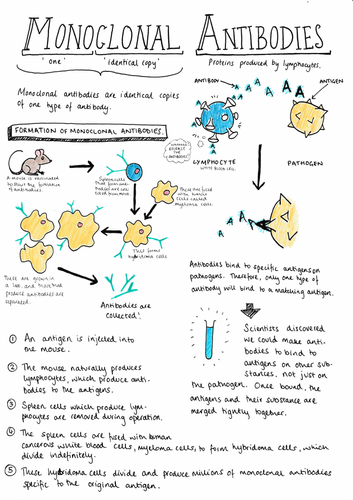 MONOCLONAL ANTIBODIES
'one' 'identical copy'
Proteins produced by lymphocytes.
Monoclonal antibodies are identical copies
of one type of antibody.
FORMATION OF MONOCLONAL ANTIBODIES.
A mouse is vaccinated
to start the formation
of antibodies.
Spleen cells
that form anti-
bodies are
These are fused
with human
cells called
myeloma cells.
These form
hybridoma cells
These are grown in
a lab, and those that
produce antibodies are
separated.
Antibodies are
collected.
ANTIBODY
ANTIGEN
RELEASE
THE
ANTIBODIES
LYMPHOCYTE
WHITE BLOOD CELL
PATHOGEN
Antibodies bind to specific antigens on
pathogens. Therefore, only one type of
antibody will bind to a matching antigen.
Scientists discovered
we could make anti-
bodies to bind to
antigens on other sub-
stances, not just on
the pathogen. Once bound, the
antigens and their substance are
merged tightly together.
1 An antigen is injected into
the mouse.
2 The mouse naturally produces
lymphocytes, which produce anti-
bodies to the antigens.
3 Spleen cells which produce lym-
phocytes are removed during operation.
4 The spleen cells are fused with human
cancerous white blood cells, myeloma cells, to form hybridoma cells, which
divide indefinitely.
5 These hybridoma cells divide and produce millions of monoclonal antibodies
specific to the original antigen.